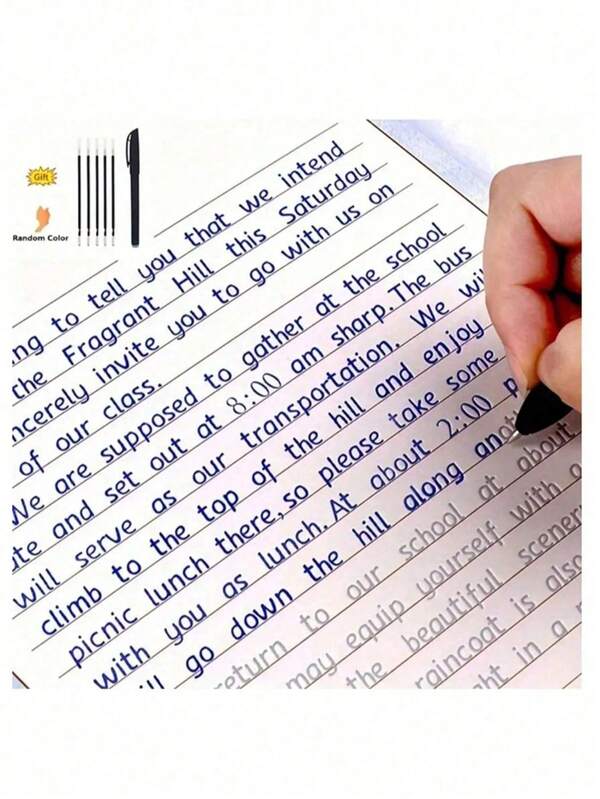 Gift
Random Color
ng to tell you that we intend
the Fragrant Hill this Saturday
ncerely invite you to go with us on
of our class.
We are supposed to gather at the school
te and set out at 8:00 am sharp. The bus
will serve as our transportation. We wil
climb to the top of the hill and enjoy
picnic lunch there, so please take some
with you as lunch. At about 2:00 p
ll go down the hill along anoth
return to our school at about
may equip yourself with a
the beautiful scener
raincoat is also
ht in a